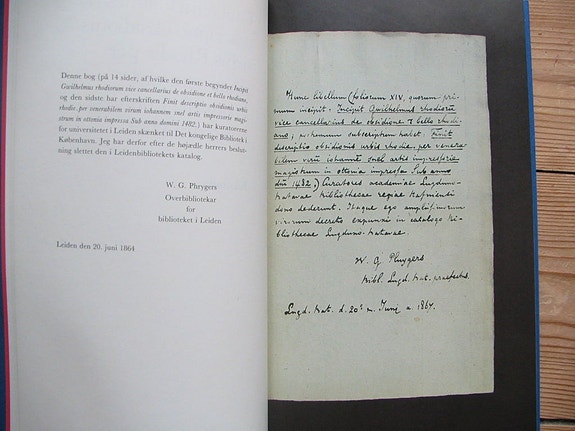 Denne bog (på 14 sider, af hvilke den første begynder Incipit
Gwilhelmus rhodiorum vice cancellarius de obsidione et bello rhodiano,
og den sidste har efterskriften Finit descriptio obsidionis urbis
rhodie per venerabilem virum iohannem snel artis impressorie magis-
trum in ottonia impressa Sub anno domini 1482.) har kuratorerne
for universitetet i Leiden skænket til Det kongelige Bibliotek i
København. Jeg har derfor efter de højædle herrers beslut-
ning slettet den i Leidenbibliotekets katalog.
W. G. Phrygers
Overbibliotekar
for
biblioteket i Leiden
Leiden den 20. juni 1864
Hunc libellum (foliorum XIV, quorum pri-
mum incipit: Incipit Gwilhelmus rhodiorũ
vice cancellarius de obsidione et bello rhodi-
ano, postremum subscriptum habet: Finit
descriptio obsidionis urbis rhodie per venera-
bilem virũ iohannẽ snel artis impressorie
magistrum in ottonia impressa Sub anno
dñi 1482.) Curatores academiae Lugduno-
Batavae Bibliothecae regiae Hafniensi
dono dederunt. Itaque ego amplissimorum
virorum decreto expunxi in catalogo Bi-
bliothecae Lugduno-Batavae.
W. G. Pluygers
Bibl. Lugd. Bat. praefectus.
Lugd. Bat. d. 20 m. Junij a. 1864.